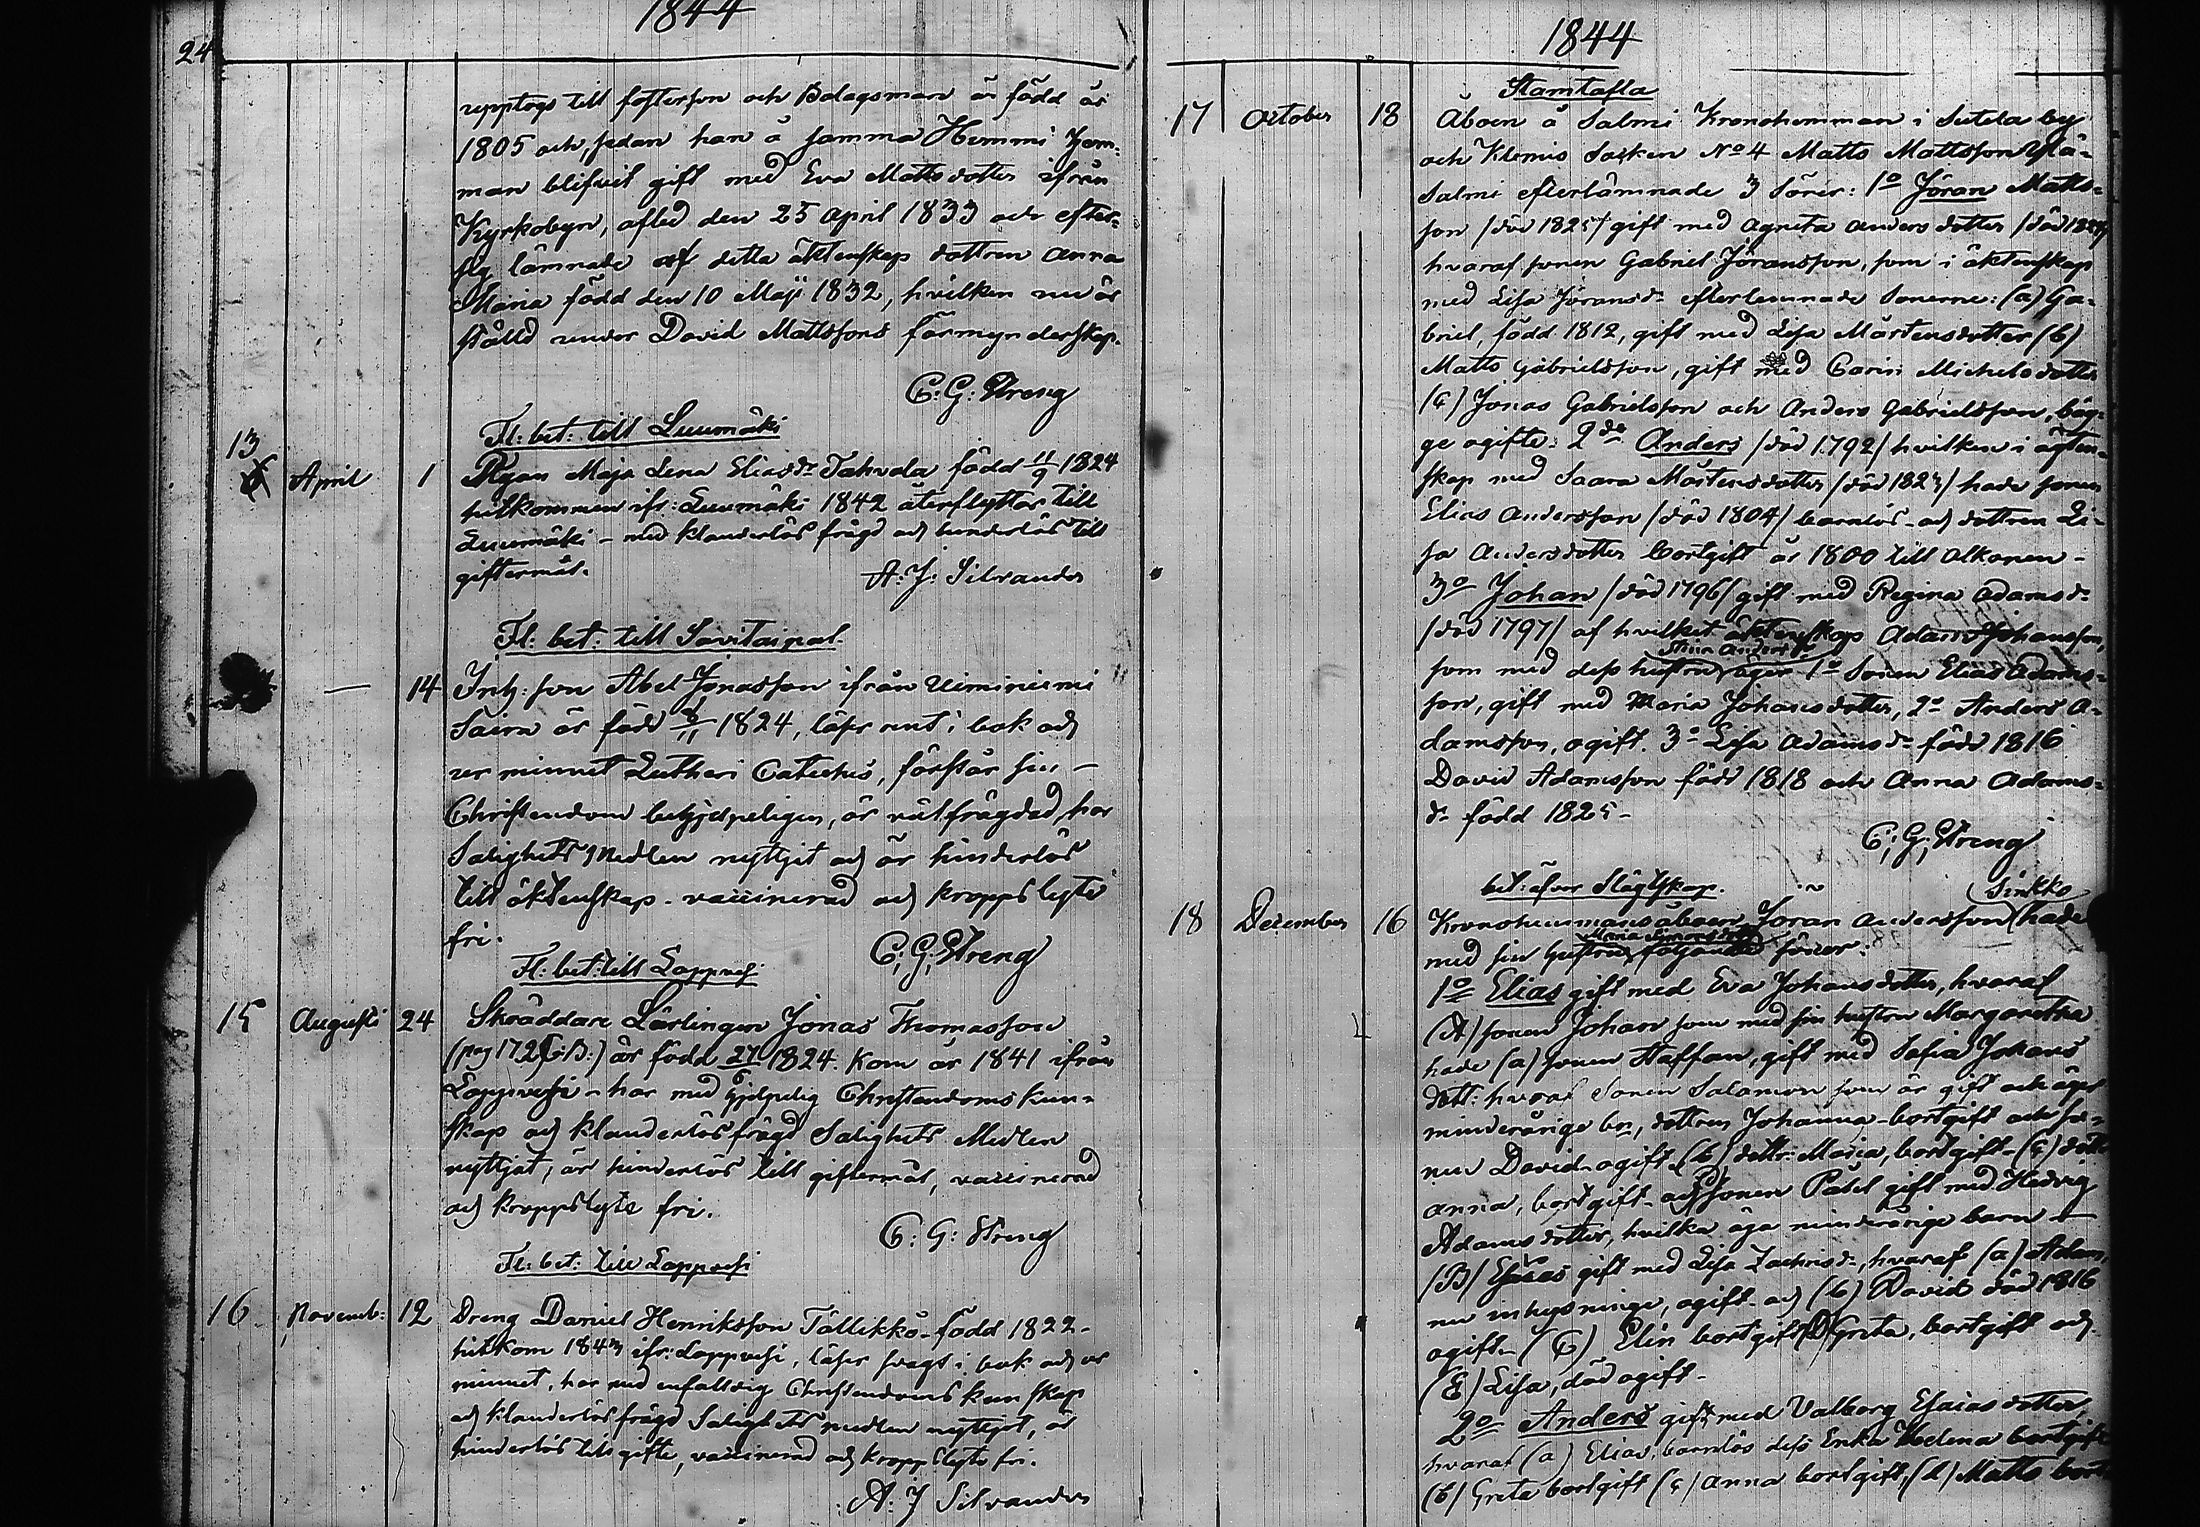 1844
24
upptogs till fosterson och Bolagsman är född år
1805 och, sedan han å samma Hemmi Hem-
man blifvit gift med Eva Mattsdotter ifrån
Kyrkobyn, afled den 25 April 1833 och efter-
lämnade af detta äktenskap dottren Anna
Maria född den 10 Maji 1832, hvilken nu är
ställd under David Mattssons förmynderskap.
C: G: Streng
Fl: bet: till Luumäki
13 April 1 Pigan Maja Lena Eliasdr Tahvola född 11/9 1824
hitkommen ifr: Luumäki 1842 återflyttar till
Luumäki - med klanderlös frägd och hinderlös till
giftermål.
A: J: Silvander
Fl: bet: till Savitaipal.
— 14 Inh: son Abel Jonasson ifrån
är född 1824, läser rent i bok och
ur minnet Lutheri Cateches, förstår sin -
Christendom behjelpeligen, är välfrägdad, har
Salighets Medlen nyttjat och är hinderlös
till äktenskap - vaccinerad och kropps lyte
fri.
C; G; Streng
Fl: bet: till Lappvesi
15 Augusti 24 Skräddare Lärlingen Jonas Thomasson
(pag 172 C: B:) är född 27/6 1824. Kom år 1841 ifrån
Lappvesi - har med hjelpelig Christendoms kun-
skap och klanderlös frägd Salighets Medlen
nyttjat, är hinderlös till giftermål, vaccinerad
och kroppslyte fri.
C: G: Streng
Fl: bet: till Lappvesi
16 Novemb: 12 Dreng Daniel Henriksson Tällikkö - född 1822 -
hitkom 1843 ifr: Lappvesi, läser svagt i bok och ur
minnet, har med enfaldig Christendoms kunskap
och klanderlös frägd Salighets medlen nyttjat, är
hinderlös till gifte, vaccinerad och kropps lyte fri.
A: J Silvander
1844
Stamtafla
17 October 18 Åboen å Salmi Kronohemman i Sutela by
och Klemis Socken No 4 Matts Mattsson Ylä-
Salmi efterlämnade 3 Söner: 1o Jöran Matts-
son /död 1825/ gift med Agneta Andersdotter /död
hvaraf sonen Gabriel Jöransson, som i äktenskap
med Lisa Jöransdr efterlemnade Sonerne: (a) Ga-
briel, född 1812, gift med Lisa Mårtensdotter (b)
Matts Gabrielsson, gift med Carin Michelsdotter
(c) Jonas Gabrielsson och Anders Gabrielsson, båg-
ge ogifte: 2do Anders /död 1792/ hvilken i ägten-
skap med Saara Mårtensdotter /död 1823/ hade sonen
Elias Andersson /död 1804/ barnlös - och dottren Li-
sa Andersdotter bortgift år 1800 till Alkonen -
3o Johan /död 1796/ gift med Regina Adamsdr
/död 1797/ af hvilket äktenskap Adam Johansson,
Stina Andersdr
som med dess hustru äger 1o Sonen Elias Adams-
son, gift med Maria Johansdotter, 2o Anders A-
damsson, ogift. 3o Lisa Adamsdr född 1816
David Adamsson född 1818 och Anna Adams-
dr född 1825 -
C; G; Streng
bet: öfver Slägtskap.
Sinkko
18 December 16 Kronohemmansåboen Jöran Andersson hade
med sin hustru följande söner:
1o Elias gift med Eva Johansdotter, hvaraf
(A) sonen Johan som med sin hustru Margaretha
hade (a) sonen Staffan, gift med Sofia Johans
dott: hvaraf Sonen Salamon som är gift och äger
minderårige bn, dottren Johanna - bortgift och so-
nen David - ogift (b) dottr: Maria, bortgift - (c) dott
Anna, bortgift - och sonen Påhl gift med Hedvig
Adamsdotter, hvilka äga minderårige barn -
(B) Esaias gift med Lisa Zachrisdr, hvaraf (a) Adam,
nu inhysninge, ogift - och (b) David död 1816
ogift - (C) Elin bortgift (D) Greta, bortgift och
(E) Lisa, död ogift -
2o Anders gift med Valborg Esaiasdotter,
hvaraf (a) Elias, barnlös dess Enka Helena bortgift
(b) Greta bortgift (c) Anna bortgift, (d) Matts bort